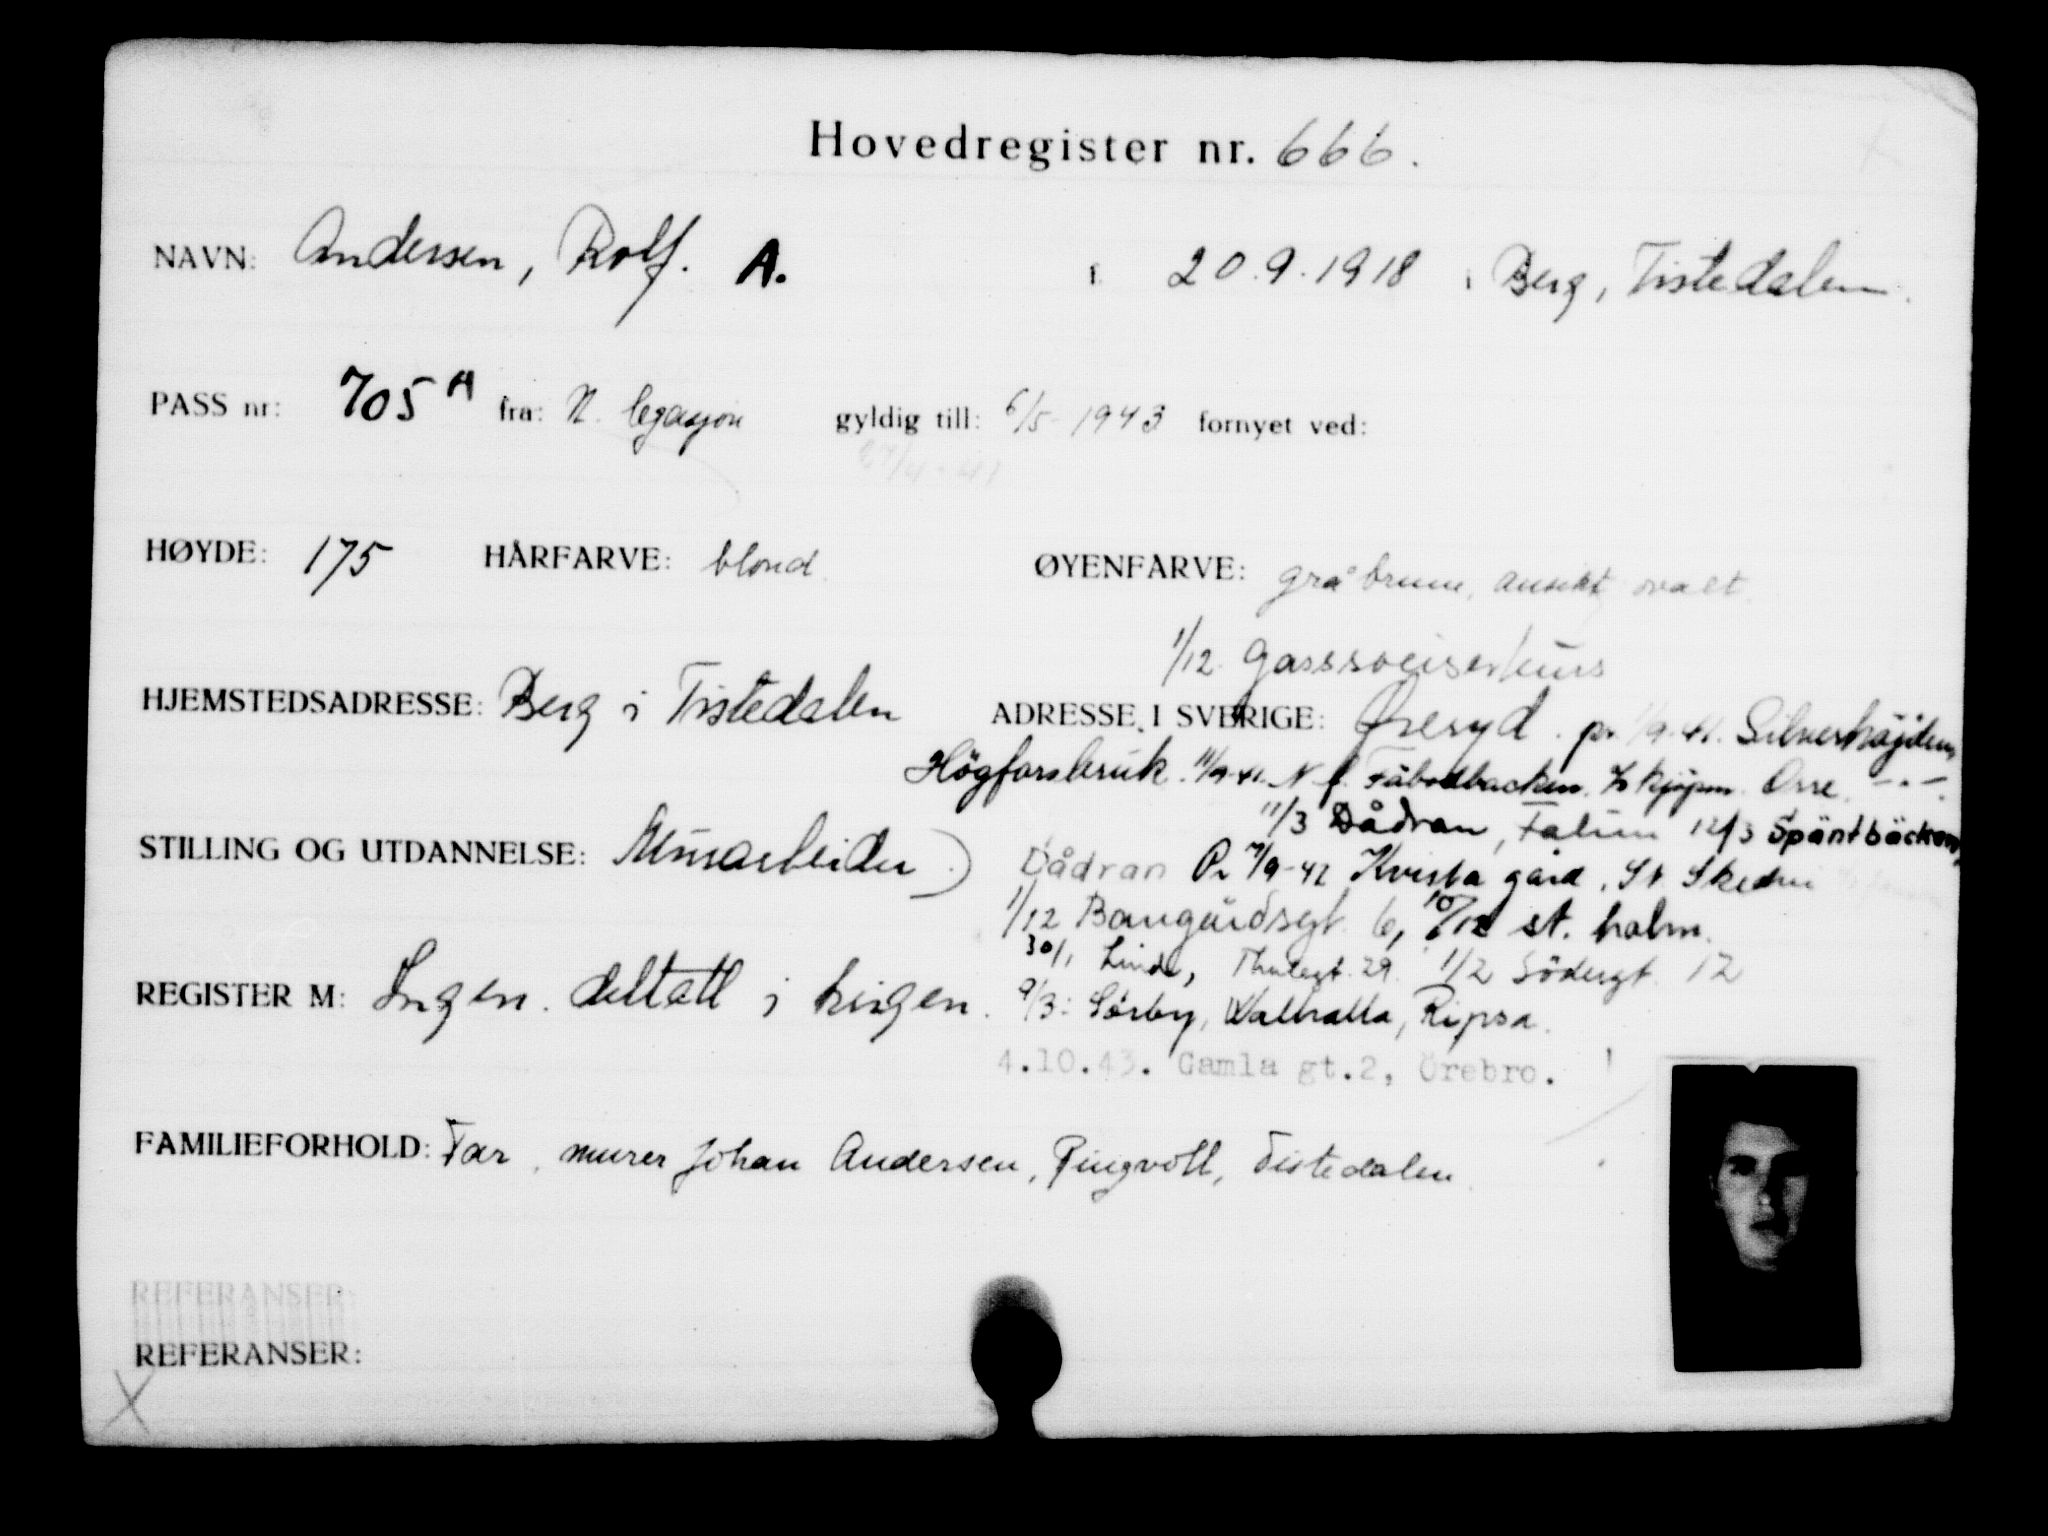 Hovedregister nr. 666.
NAVN: Andersen, Rolf. A. f. 20.9.1918 i Berg, Tistedalen.
PASS nr: 705 A fra: N. legasjon gyldig till: 6/5-1943 fornyet ved:
HØYDE: 175 HÅRFARVE: blond. ØYENFARVE: gråbrune, ansikt ovalt.
1/12. Gasssveiserkurs
HJEMSTEDSADRESSE: Berg i Tistedalen ADRESSE I SVERIGE: Øreryd. pr. 1/9-41. Silverhöjden,
Högforsbruk. 11/9-41. N. f. Fäbodbacken.
11/3 Dådran, Falun 12/3 Späntbäcken,
STILLING OG UTDANNELSE: Murarbeider) Dådran Pr 7/9-42 Kvista gård, St. Skedvi
1/12 6, 10/12 st. holm.
30/1 Linde, Thulegt. 29. 1/2 Södergt. 12
REGISTER M: Ingen. deltatt i krigen. 9/3: Sörby, Walhalla, Ripsa.
4.10.43. Gamla gt.2, Örebro.
FAMILIEFORHOLD: Far, murer Johan Andersen, Ringvoll, Tistedalen.
REFERANSER:
REFERANSER:
X